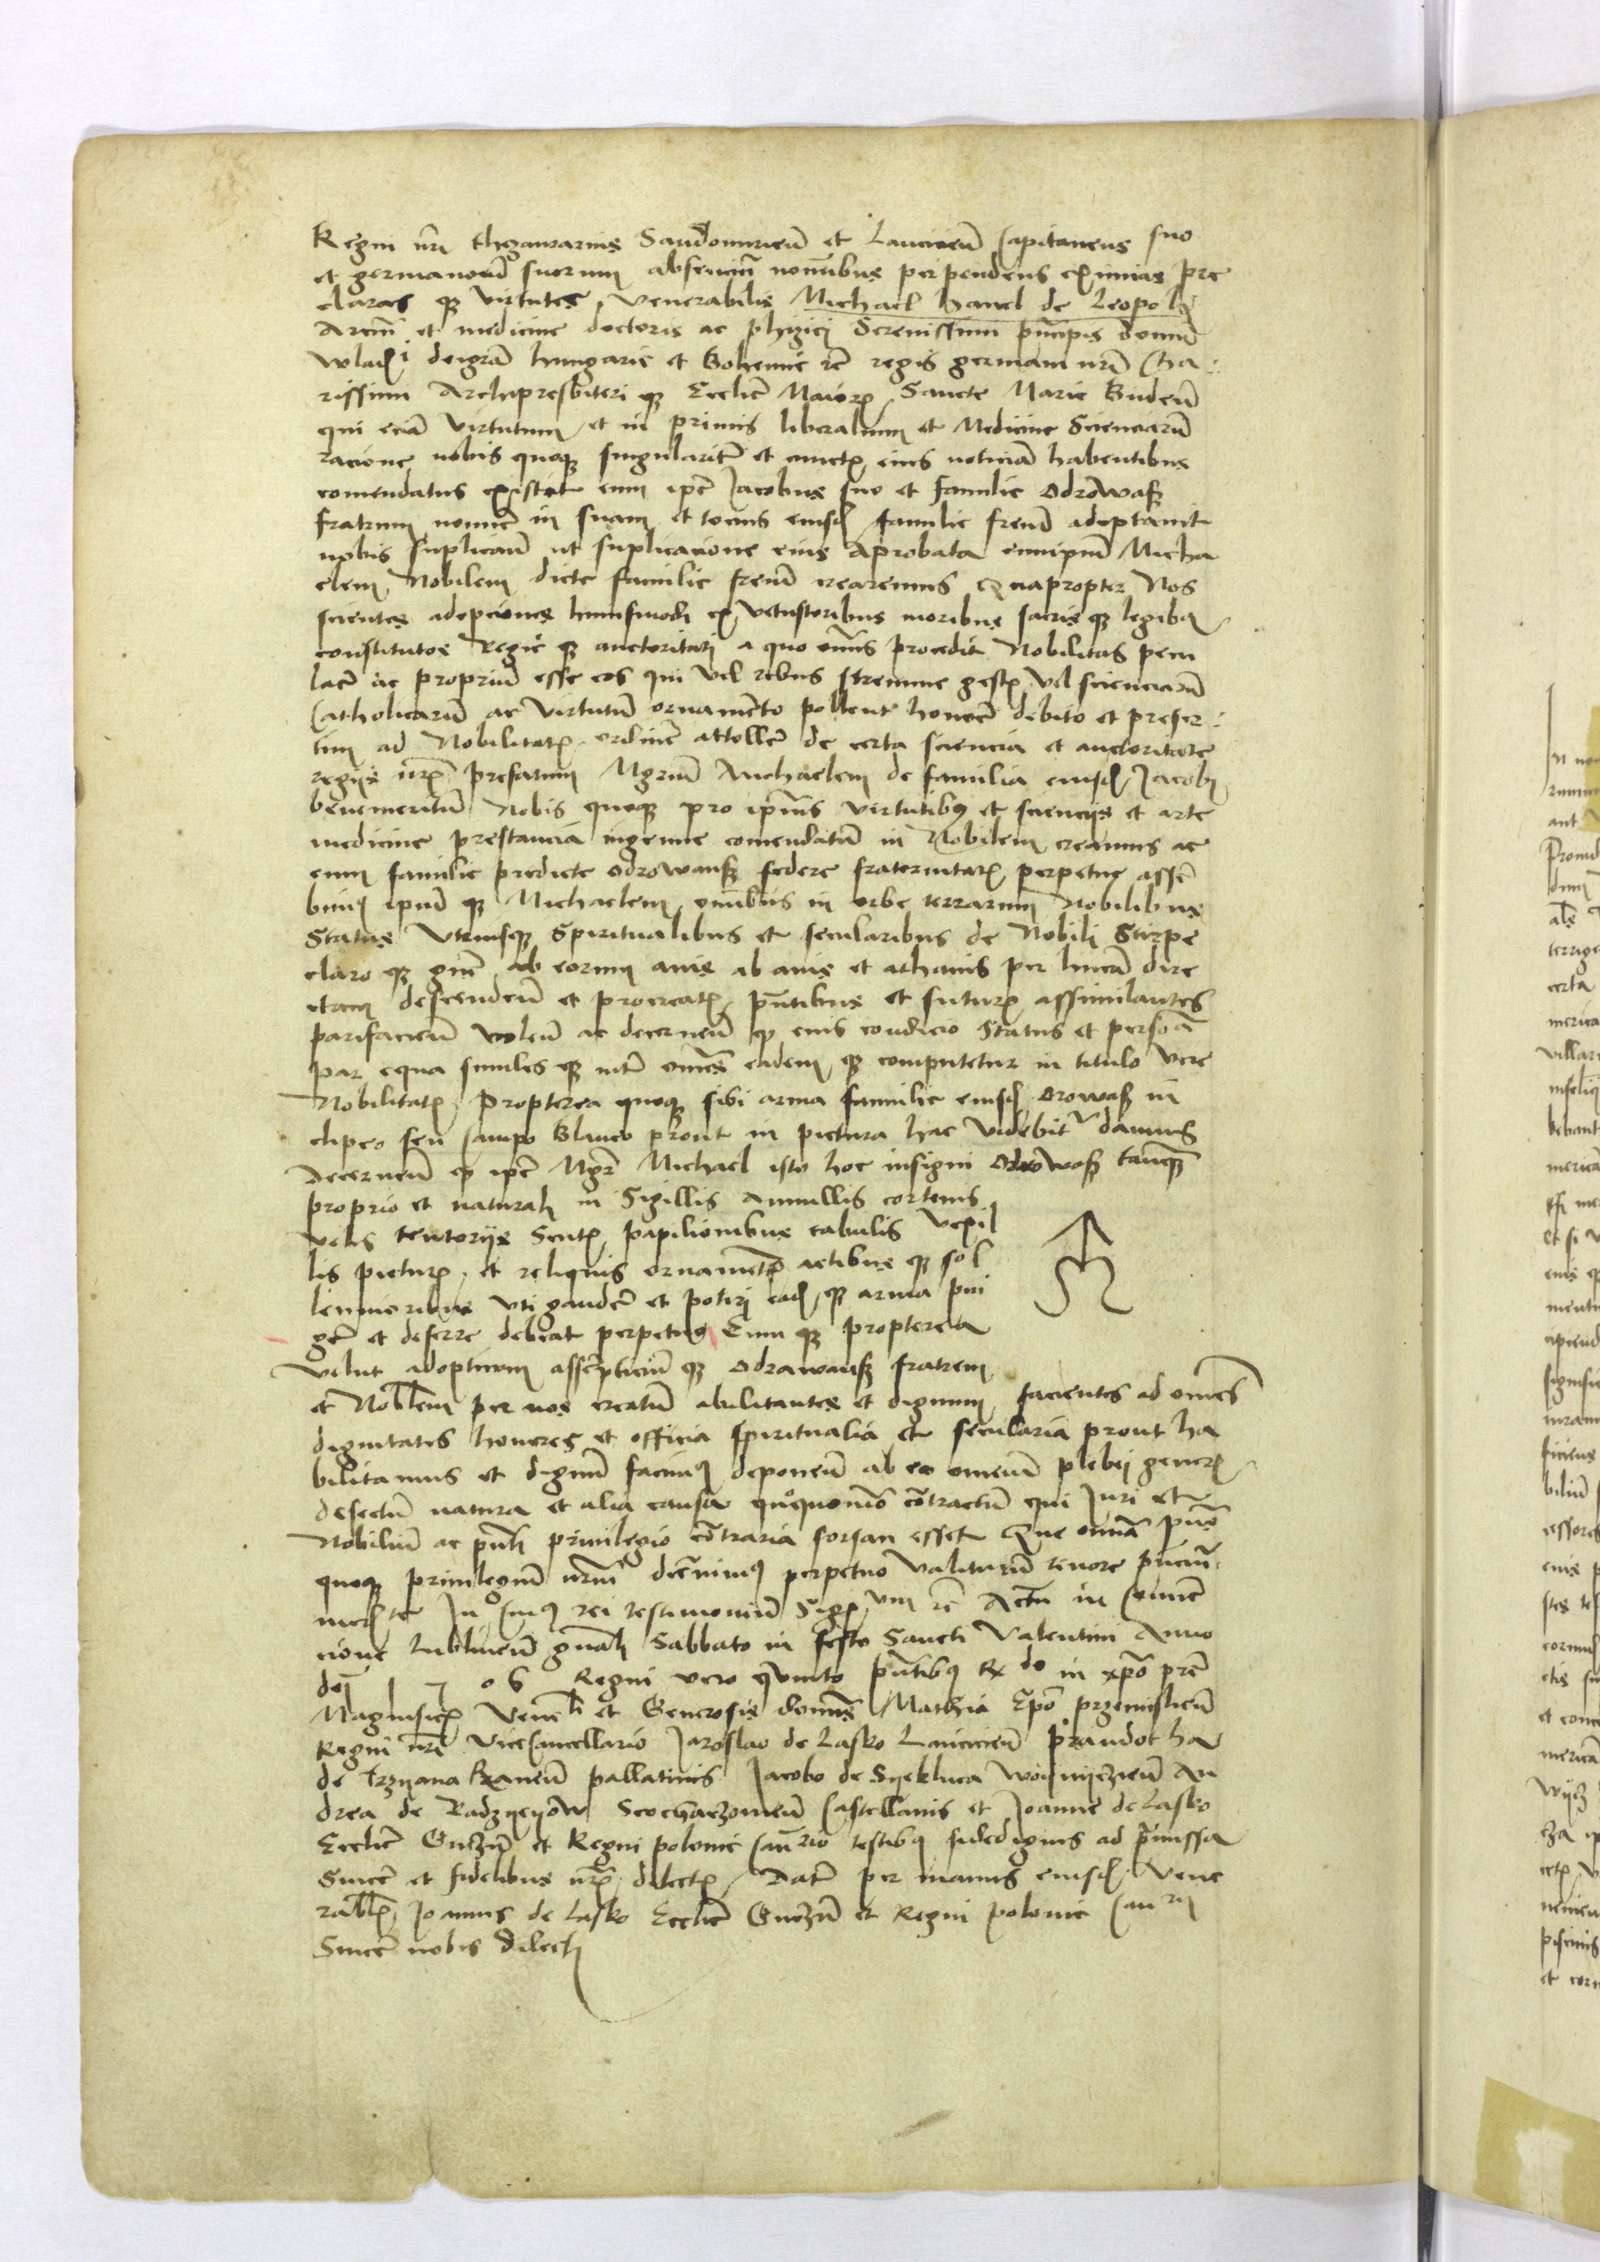 Regni nri thezaurarius Sandomirien̄ et Lancicien̄ Capitaneus suo
et germanorū suorum absenciū nominibus perpendens eximias pre
claras q virtutes venerabilis Michael hamel de Leopoli
Arciū et medicine doctoris ac phizici Serenissimi principis domini
Wladi deigrā hungarie et Bohemie rc regis germani nrī Cha
rissimi Archipresbiteri q Ecclie Maioris Sancte Marie Budeñ
qui eciā virtutum et in primis liberalium et Medicine Scienciarū
racione nobis quoq singularit̄ et cunctis eius noticiā habentibus
comendatus existat eum ipē Jacobus suo et familie Odrowąsz
fratrum nomīe in suam et tocius eiusd familie frem̄ adoptavit
nobis suplicaū ut suplicacione eius Aprobata eumipm̄ Micha
elem Nobilem dicte familie frem̄ crearemus Quapropter Nos
scientes adopciones huiusmodi ex vetustoribus moribus sacris q legibꝫ
constitutos Regie q auctoritati a quo omnis procedit Nobilitas pecu
lare ac propriū esse eos qui vel rebus strennue gestis vel scienciarū
Catholicarū ac virtutū ornamento pollent honore debito et preser
tim ad Nobilitatis ordinē attollere de certa sciencia et auctoritate
regijs nris prefatum Mgrum̄ Michaelem de familia eiusd Jacobi
benemeritū Nobis quoq pro ipsius virtutibus et sciencijs et arte
medicine prestancia ingenue comendatū in Nobilem creamus ac
eum familie predicte Odrowansz federe fraternitatis perpetue asscri
bimus ipm̄ q Michaelem omībus in orbe terrarum Nobilibus
Status utriusque Spiritualibus et secularibus de Nobili Stirpe
claro q gnē ab eorum avis ab avis et athavis per lineā dire
ctam descendeñ et procreatis pn̄tibus et futuris assimilantes
parifacieñ voleñ ac decerneñ q eius condicio Status et persona
par equa similes q int̄ omēs eadem q computetur in titulo vere
Nobilitatis Propterea quoq sibi arma familie eiusd Orowąsz in
clipeo seu campo blaueo prout in pictura hac videbit̄ damus
Decerneñ q ipē Mgr̄ Michael isto hoc insigni Odrowosz tanq̄
proprio et naturali in Sigillis Annullis cortenis
velis tentorijs Scutis papilionibus tabulis vexil
lis picturis et reliquis ornamētis actibus q sol
lennioribus uti gaudere et potiri ead q arma pin
gere et deferre debeat perpetuo Eum q propterea
velut adoptivum asscripticiū q Odrawansz fratrem
et Nobilem per nos creatū abilitantes et dignum facientes ad omēs
dignitatis honores et officia spiritualia et secularia prout ha
bilitamus et dignū facimus deponeñ ab eo omeñ plebej generis
defectū natura et alia causa quoquomō cōtractū qui Juri et
Nobiliū ac pn̄ti privilegio cōtraria forsan esset Que omīa pn̄s
quoq privilegiū nrm̄ decernimus perpetuo valiturū tenore pn̄ciū
med te In cuius rei testimoniū Sigum rc Actū in Conve
cione Lublineñ gnāli Sabbato in festo Sancti Valentini Anno
dnī 1506 Regni vero quinto pn̄tibus Rdo in xpō pre
Magnificis Venli et Generosis dominis Mathia Epō przemislieñ
Regni nrī ViceCancellario Jaroslao de Lasko Lancicieñ Prandotha
de Trzyana Rzaneñ pallatinis Jacobo de Syekluca Woynyczieñ An
drea de Radzyeyow Scochaczomieñ Castellanis et Joanne de Lasko
Ecclie Gnezn̄ et Regni polonie Canrio testibus fidedignis ad p̄missa
Sincere et fidelibus nris dilectis Datū per manus eiusd Vene
rablis Joannis de Lasko Ecclie Gneznī et Regni polonie Canrij
Sincere nobis dilecti